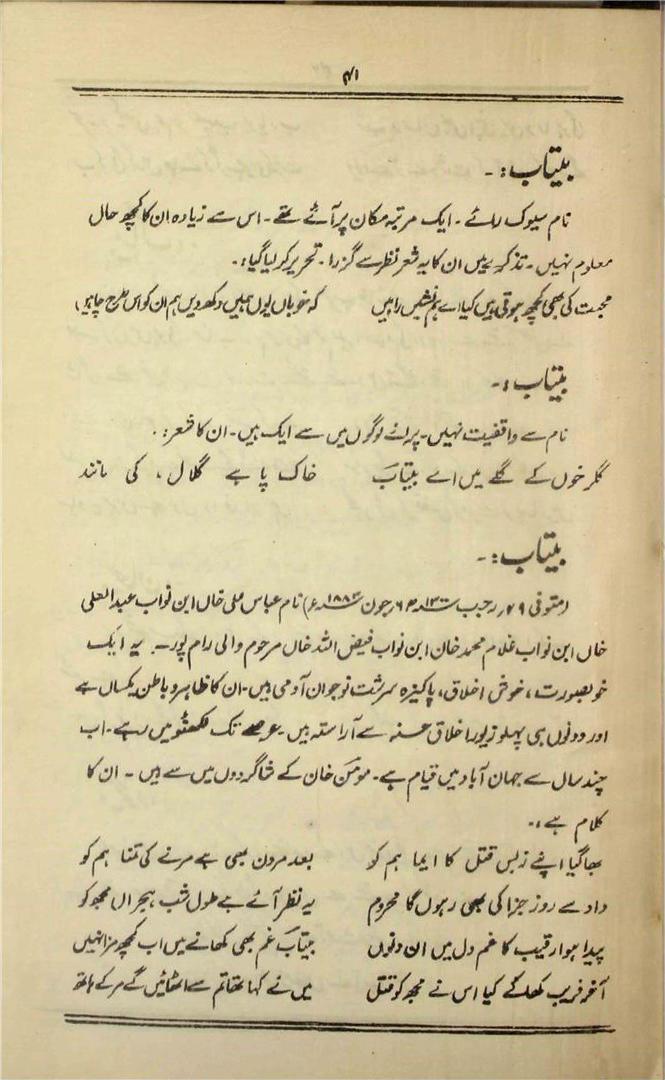 ۴۱
بیتاب:۔
نام سیوک رائے۔ ایک مرتبہ مکان پر آئے تھے۔ اس سے زیادہ ان کا کچھ حال
معلوم نہیں۔ تذکرے میں ان کا یہ شعر نظر سے گزرا۔ تحریر کر لیا گیا:۔
محبت کی بھی کچھ ہوتی ہیں کیا اے ہم نشیں راہیں کہ خوباں یوں ہمیں دکھ دیں ہم ان کو اس طرح چاہیں
بیتاب:۔
نام سے واقفیت نہیں۔ پرانے لوگوں میں سے ایک ہیں۔ ان کا شعر:۔
گلرخوں کے گلے میں اے بیتاب خاک پا ہے گلال، کی مانند
بیتاب:۔
(متوفی ۲۹ رجب ۱۳۰۰ھ ۶ جون ۱۸۸۳ء) نام عباس علی خاں ابن نواب عبدالعلی
خاں ابن نواب غلام محمد خان ابن نواب فیض اللہ خاں مرحوم والی رام پور۔ یہ ایک
خوبصورت، خوش اخلاق، پاکیزہ سرشت نوجوان آدمی ہیں۔ ان کا ظاہر و باطن یکساں ہے
اور دونوں ہی پہلو زیور اخلاق حسنہ سے آراستہ ہیں۔ عرصے تک لکھنؤ میں رہے۔ اب
چند سال سے جہان آباد میں قیام ہے۔ مومن خان کے شاگردوں میں سے ہیں۔ ان کا
کلام ہے:۔
بھا گیا اپنے زبس قتل کا ایما ہم کو بعد مردن بھی ہے مرنے کی تمنا ہم کو
داد سے روز جزا کی بھی رہوں گا محروم یہ نظر آئے ہے طول شب ہجراں مجھ کو
پیدا ہوا رقیب کا غم دل میں ان دنوں بیتاب غم بھی کھانے میں اب کچھ مزا نہیں
آخر فریب کھا کے کیا اس نے مجھ کو قتل میں نے کہا تھا تم سے اٹھائیں گے مر کے ہاتھ